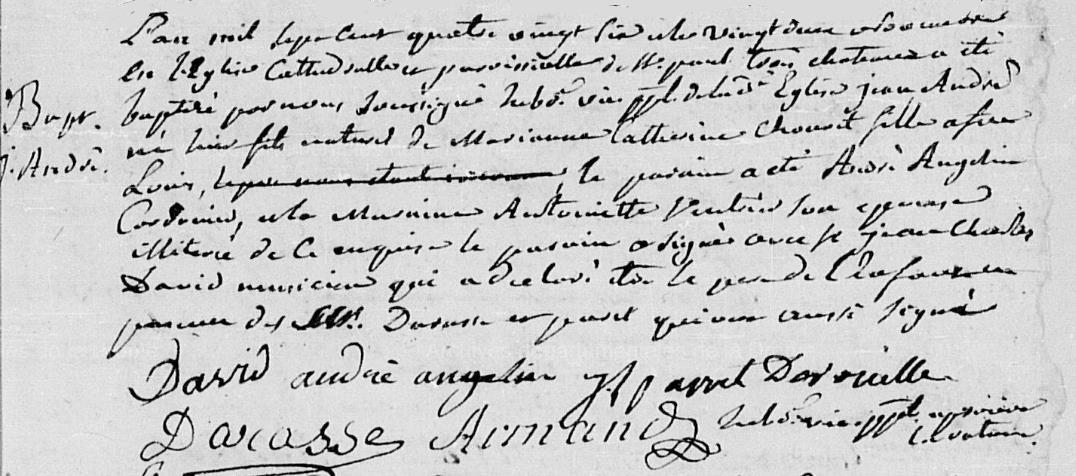 L'an mil sept cent quatre vingt six et le vingt deux
en l'Eglise Cathedralle et paroissielle de St. paul trois chateaux a été
Bapt. baptisé par nous soussigné hebd. vic. ppl. de la d. Eglise jean André
J. André. né hier fils naturel de Marianne Catherine Chouvet fille a feu
Louis, le parain a été André Angelin
Cordonier, et la Maraine Antoinette son epouse
illiterée de ce enquise le parain a signé avec Sr jean Charles
David musicien qui a declaré etre le pere de l'enfant en
presence des Mrs. Darasse et paret qui ont aussi signé
David andré angelin
Darasse Armand hebd. vic. ppl.